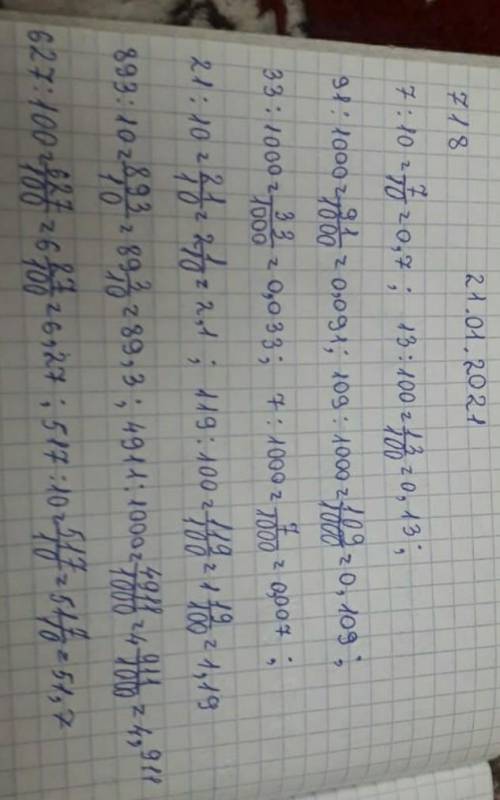 21.01.2021
718
7:10=7/10=0,7; 13:100=13/100=0,13;
91:1000=91/1000=0,091; 109:1000=109/1000=0,109;
33:1000=33/1000=0,033; 7:1000=7/1000=0,007;
21:10=21/10=2 1/10=2,1; 119:100=119/100=1 19/100=1,19
893:10=893/10=89 3/10=89,3; 4911:1000=4911/1000=4 911/1000=4,911
627:100=627/100=6 27/100=6,27; 517:10=517/10=51 7/10=51,7